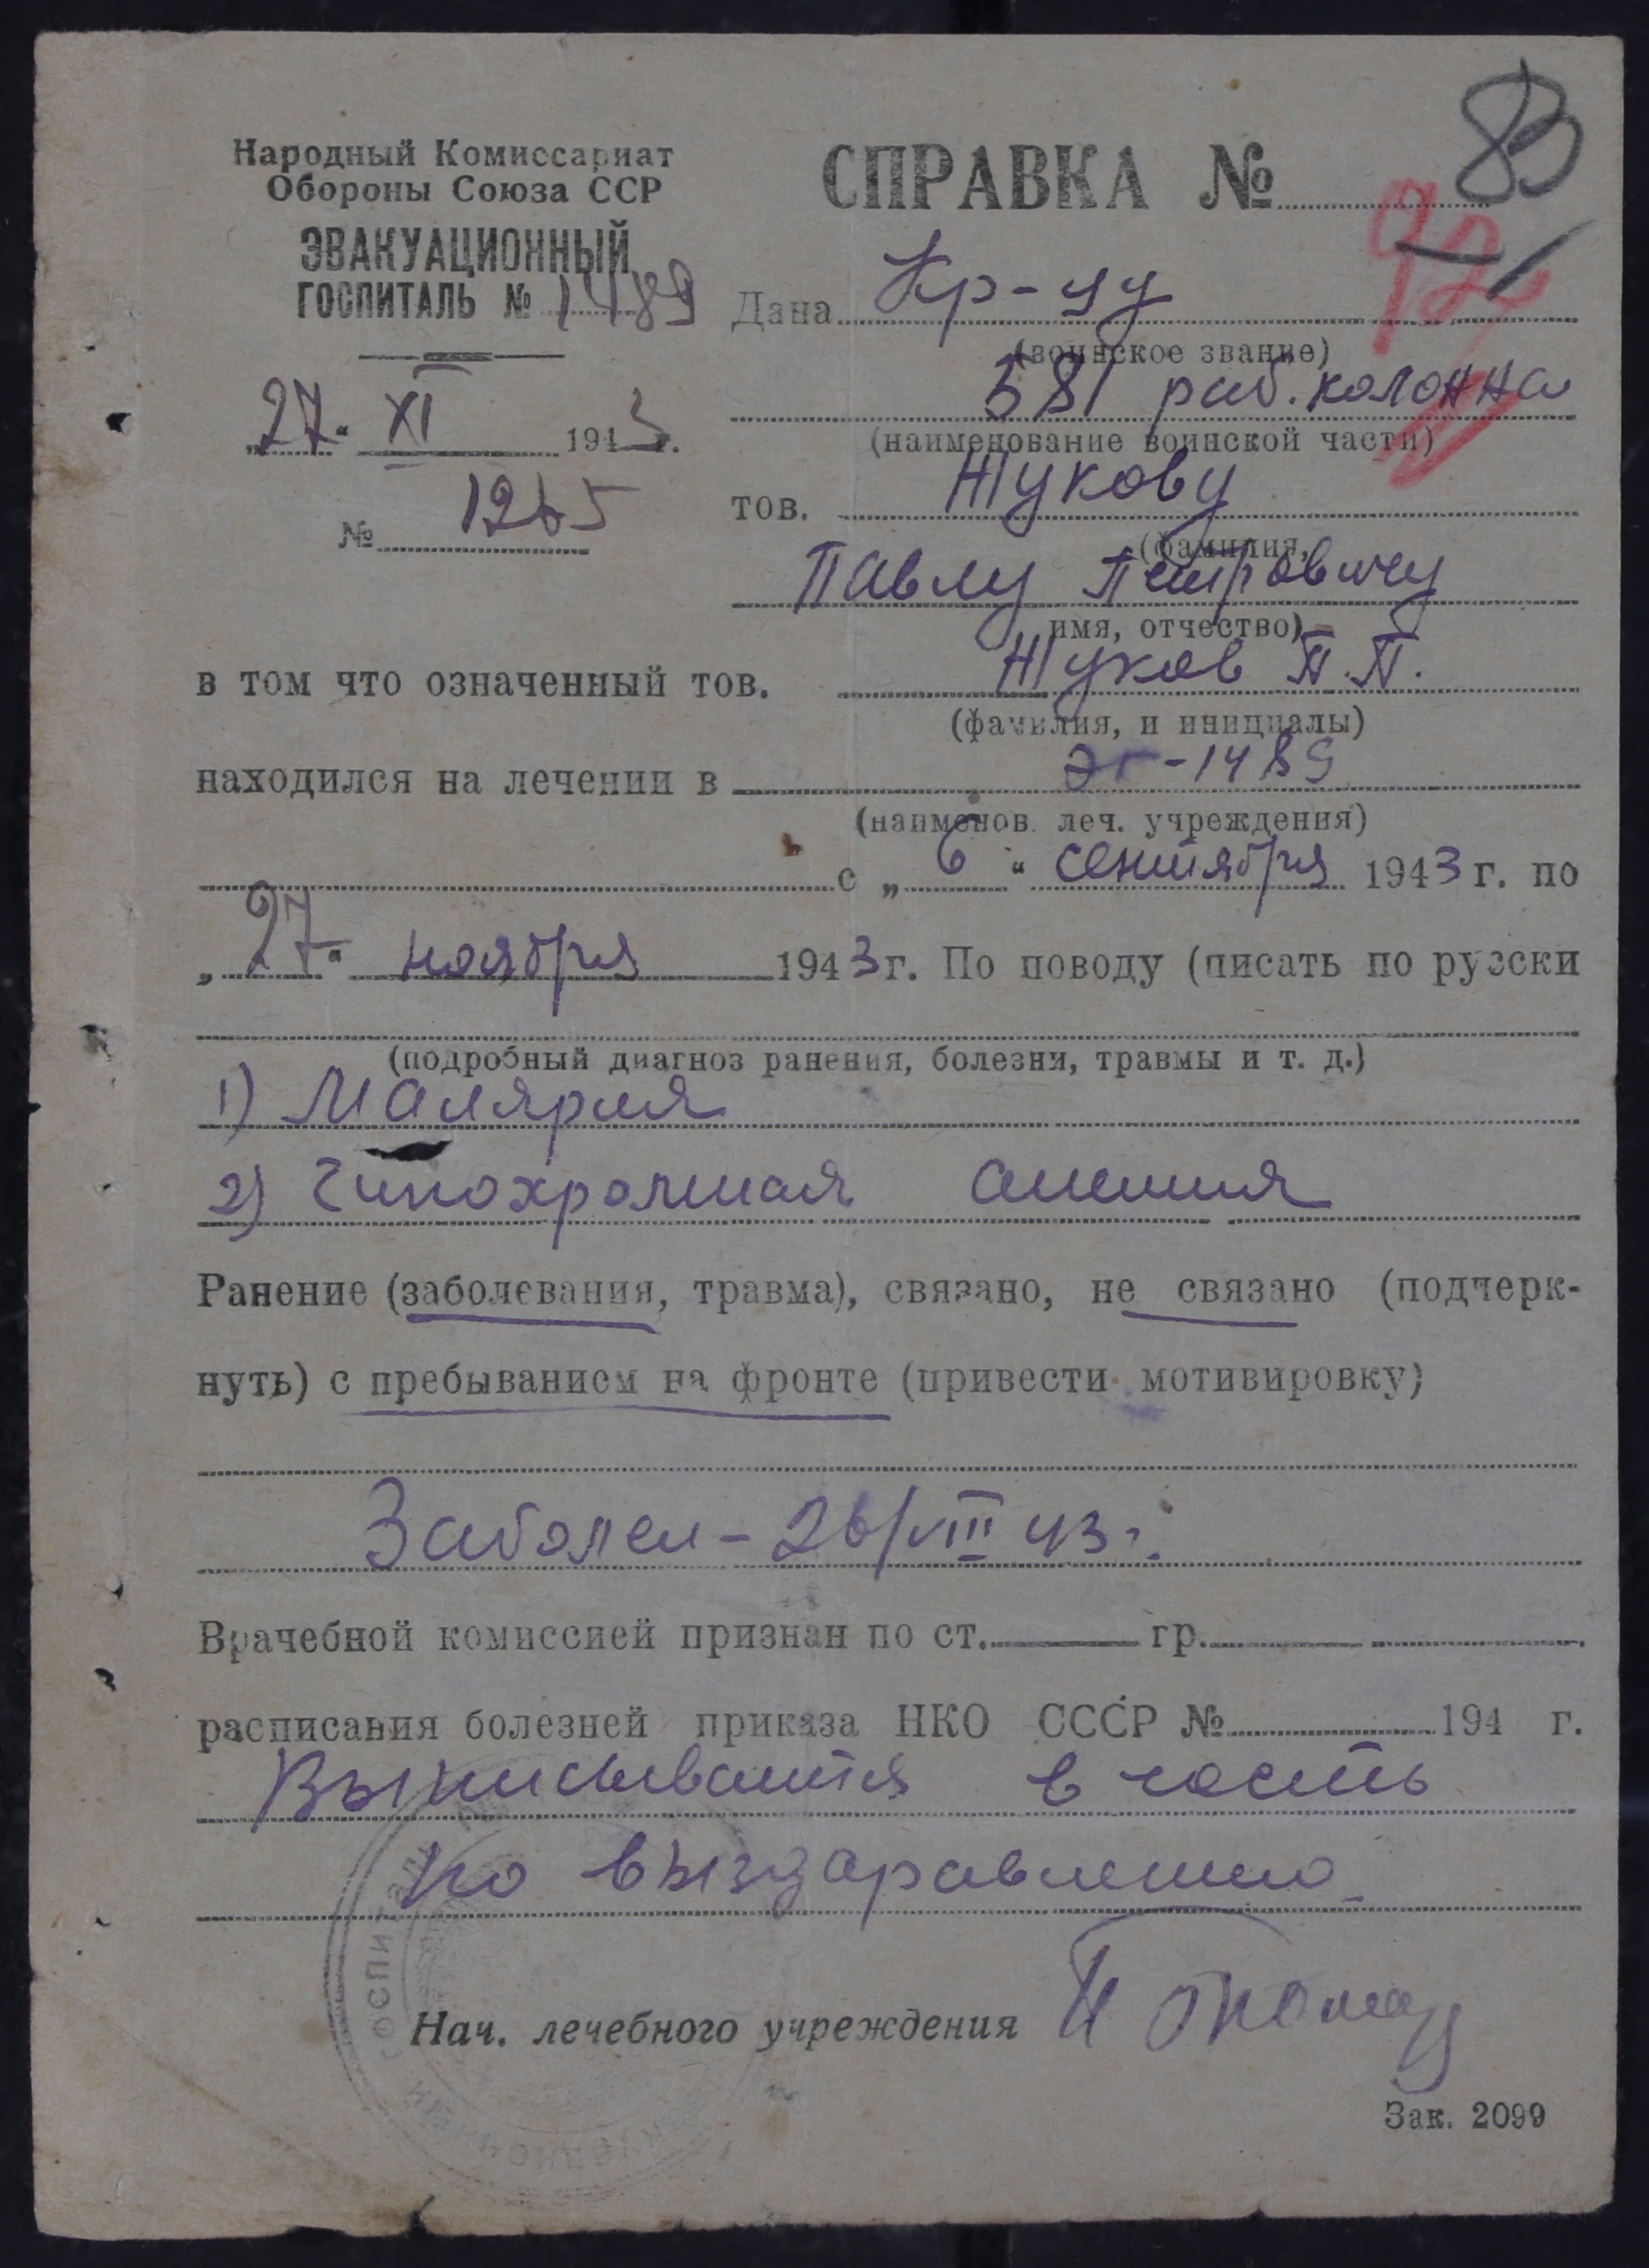 83
92
Народный Комиссариат
Обороны Союза ССР
ЭВАКУАЦИОННЫЙ
ГОСПИТАЛЬ № 1489
„27“ XI 1943 г.
№ 1265
СПРАВКА №
Дана Кр-цу
(воинское звание)
581 раб. колонна
(наименование воинской части)
тов. Жукову
(фамилия,
Павлу Петровичу
имя, отчество)
в том что означенный тов. Жуков П.П.
(фамилия, и инициалы)
находился на лечении в ЭГ-1489
(наименов. леч. учреждения)
с „6“ сентября 1943 г. по
„27“ ноября 1943 г. По поводу (писать по русски
(подробный диагноз ранения, болезни, травмы и т. д.)
1) Малярия
2) Гипохромная анемия
Ранение (заболевания, травма), связано, не связано (подчерк-
нуть) с пребыванием на фронте (привести мотивировку)
Заболел - 26/VIII 43 г.
Врачебной комиссией признан по ст. гр.
расписания болезней приказа НКО СССР № 194 г.
Выписывается в часть
по выздаравлению
Нач. лечебного учреждения
ГОСПИТАЛ
Зак. 2099